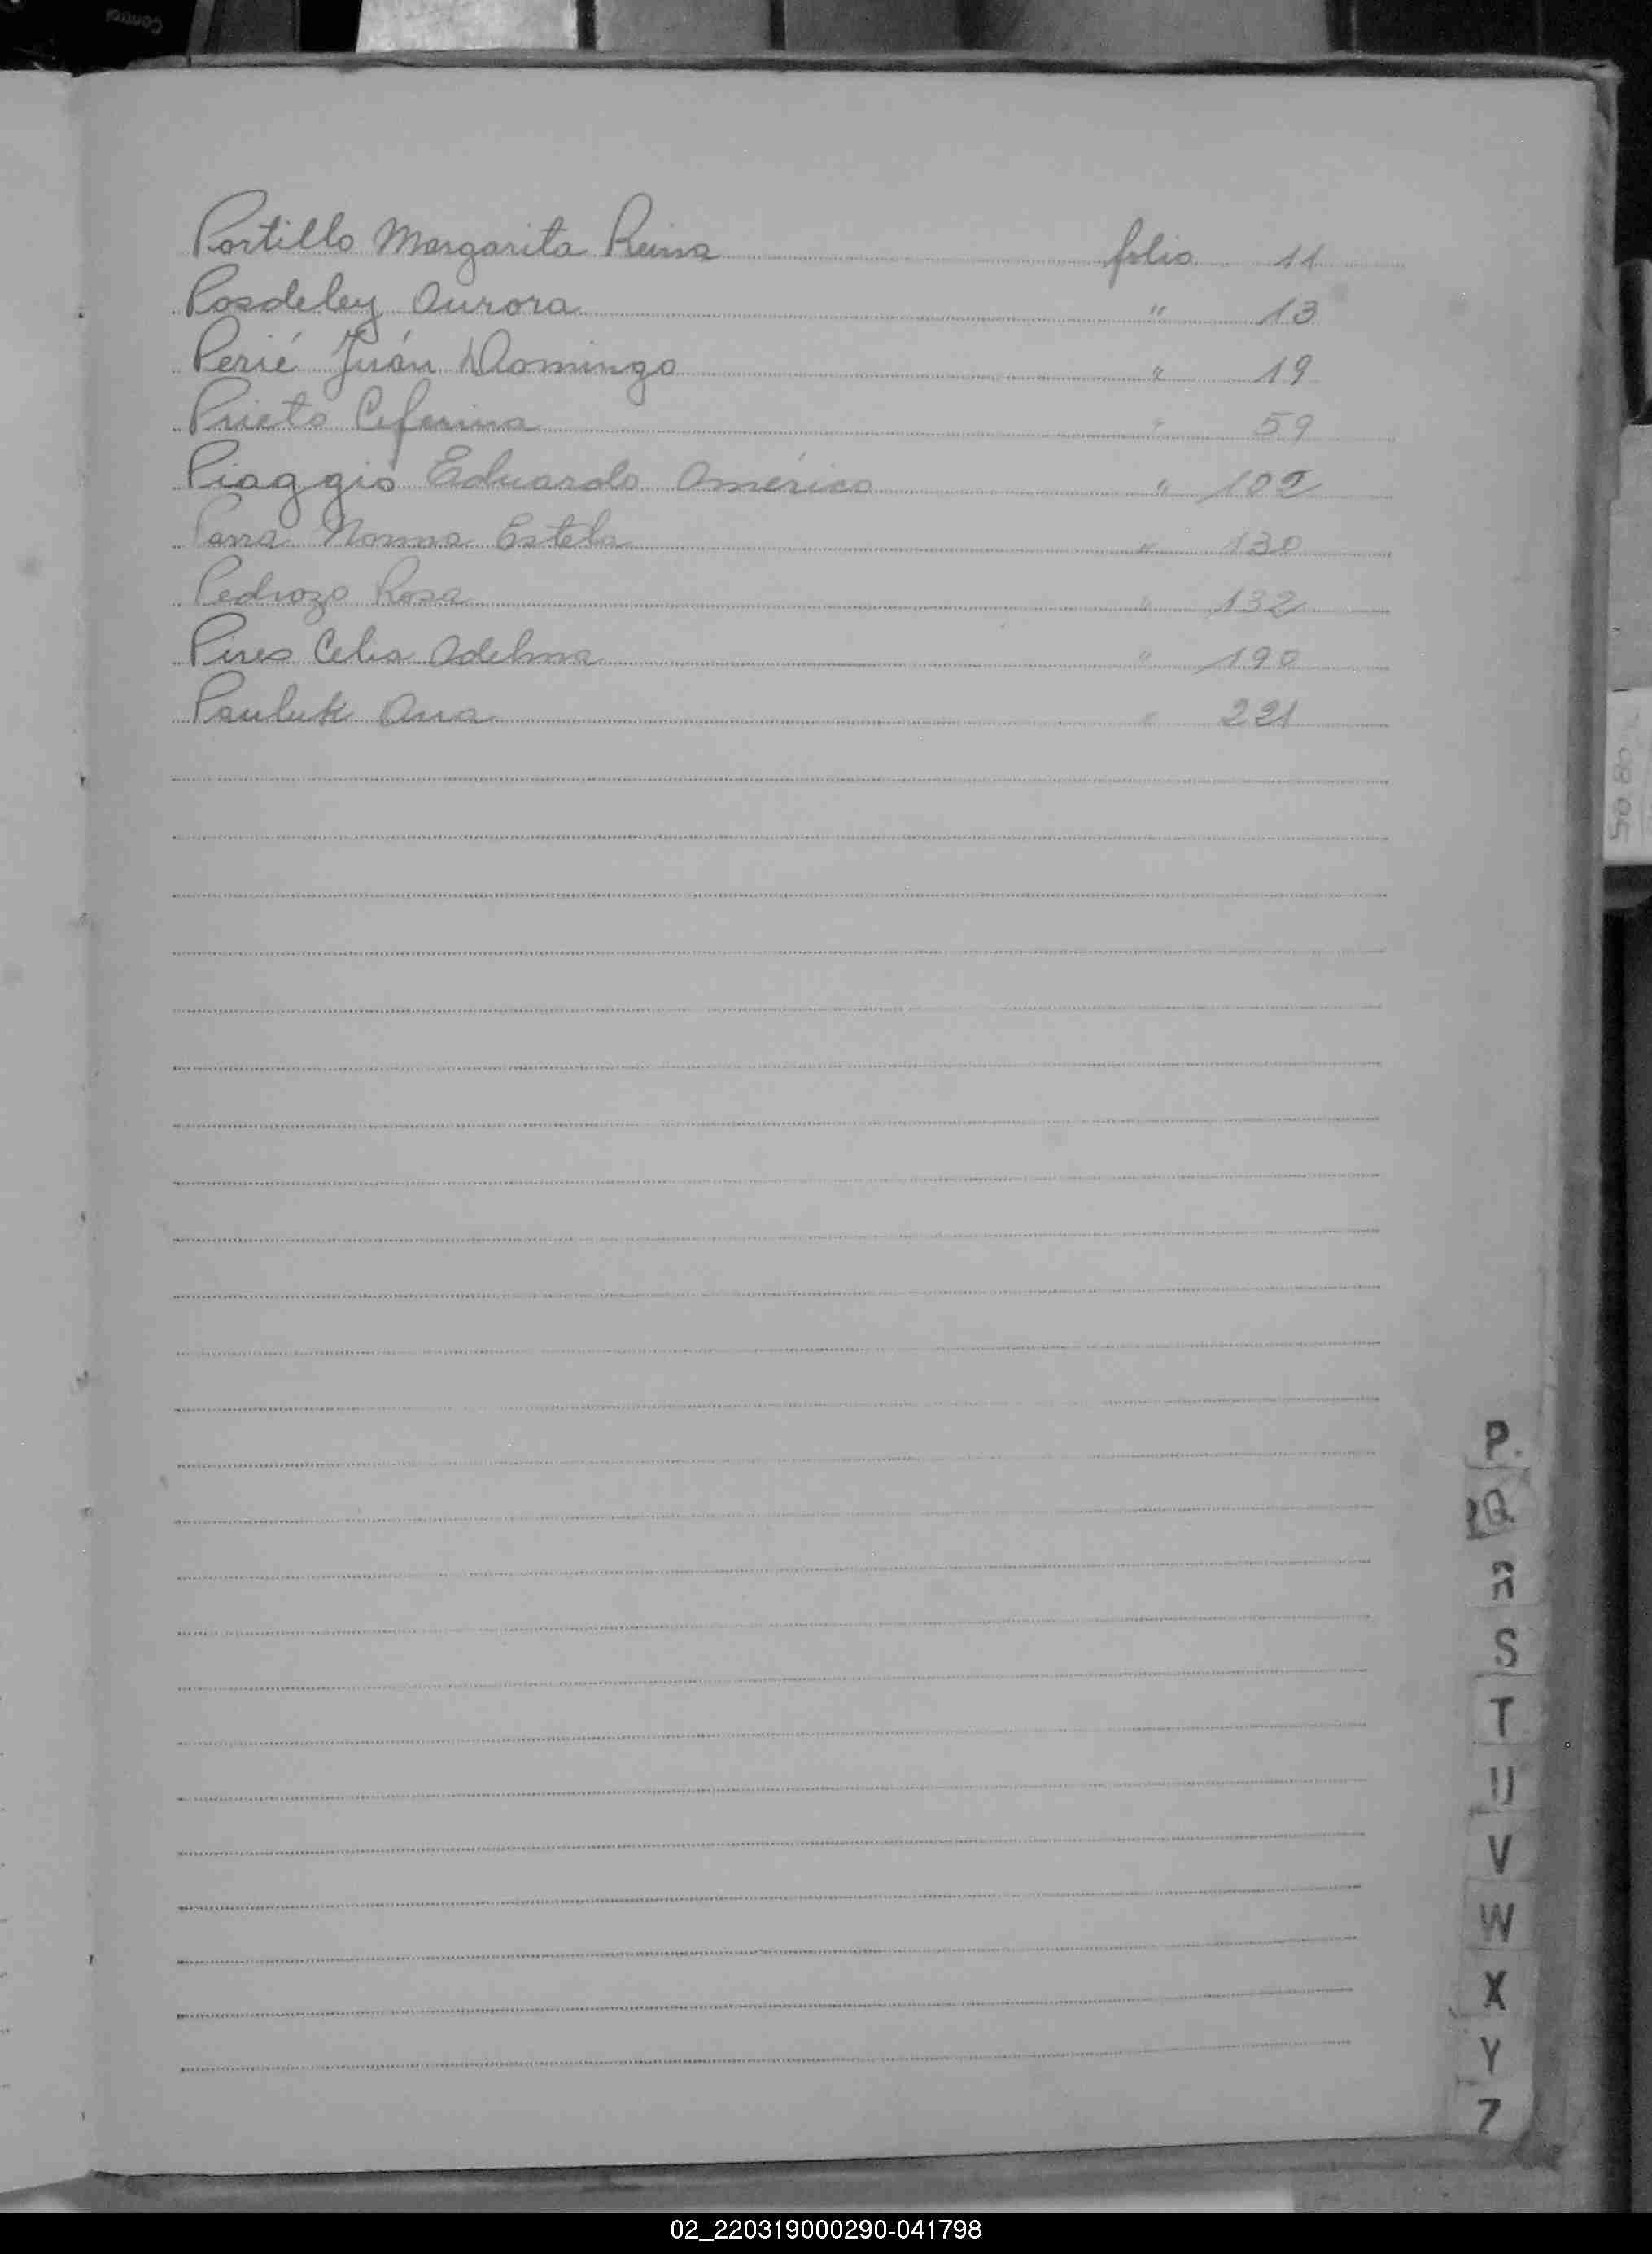 Portillo Margarita Reina folio 11
Posdeley Aurora " 13
Perié Juán Domingo " 19
Prieto Ceferina " 59
Piaggio Eduardo Américo " 102
Parra Norma Estela " 130
Pedrozo Rosa " 132
Pires Celia Adelma " 190
Pauluk Ana " 221
P
Q
R
S
T
U
V
W
X
Y
Z
02_220319000290-041798